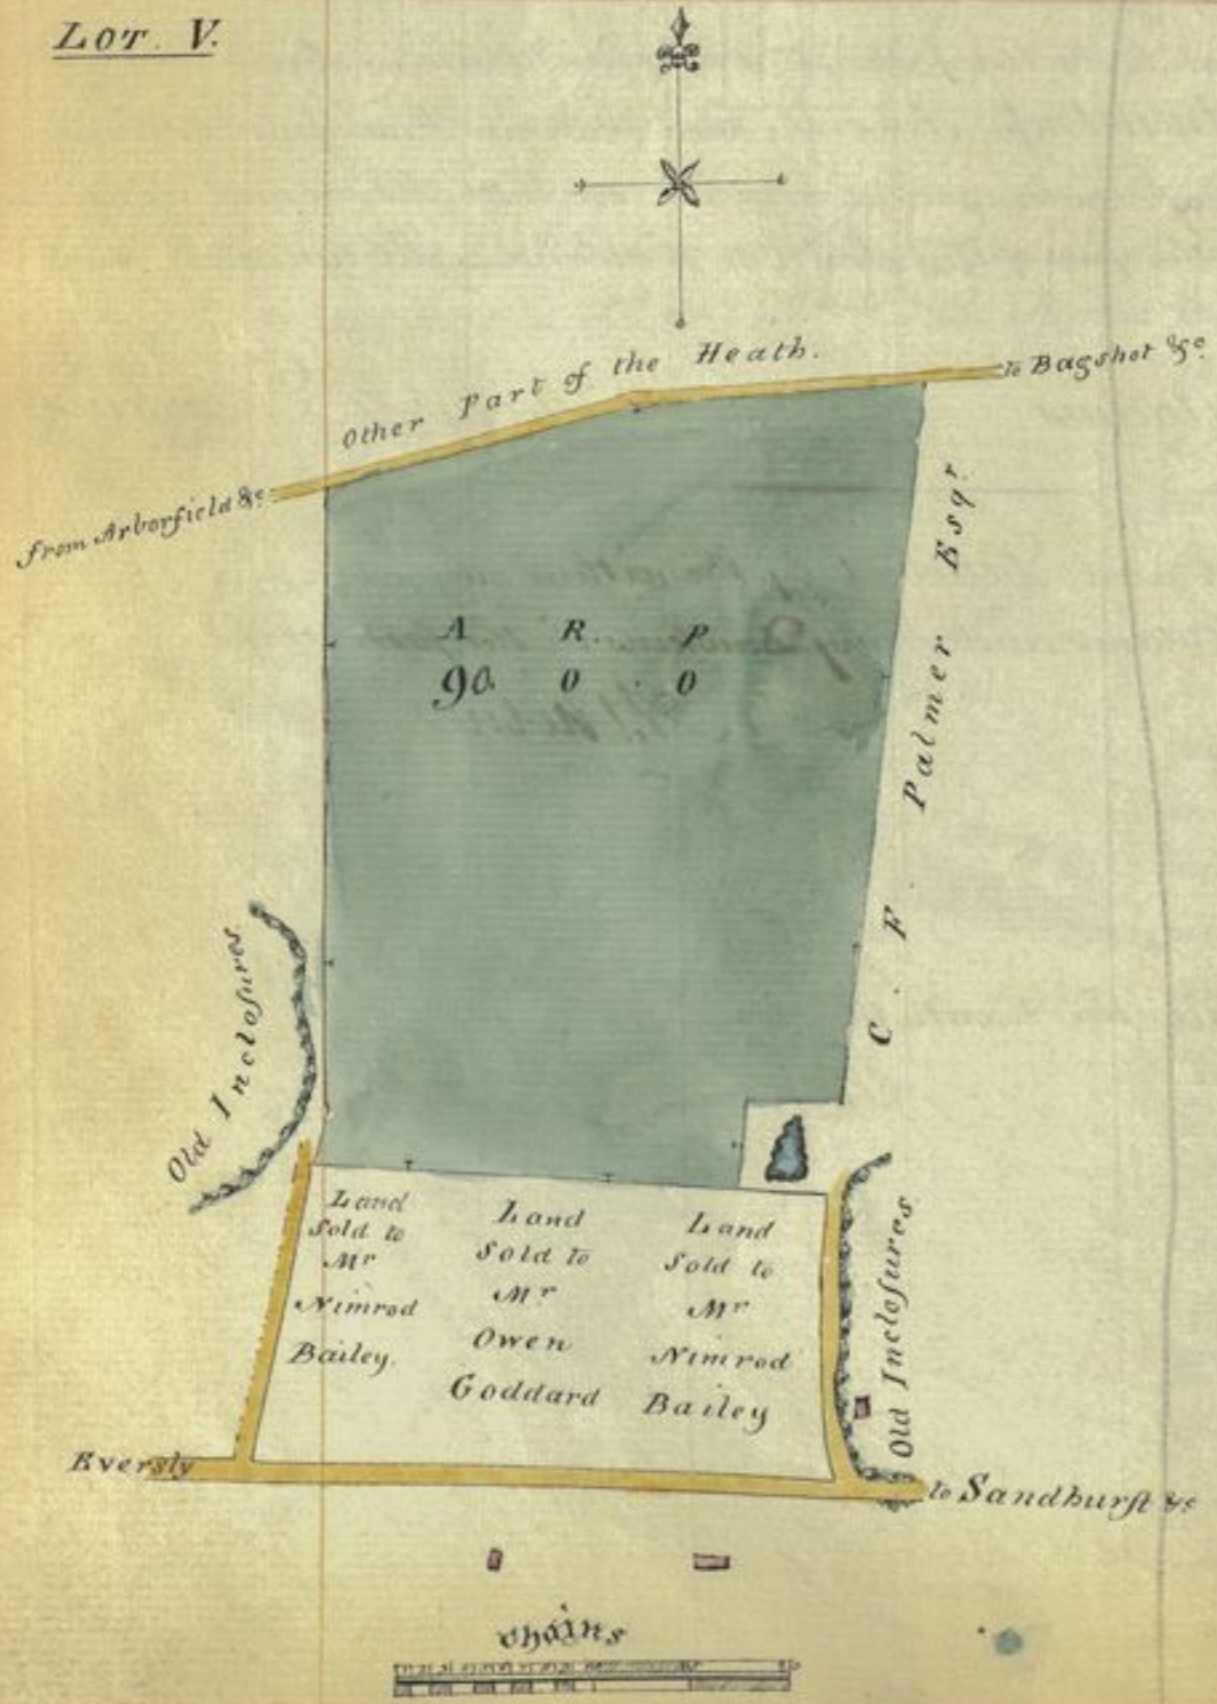 LOT. V.
Other Part of the Heath.
to Bagshot &c.
from Arborfield &c.
A R. P
90. 0 . 0
C . F . Palmer Esqr
Old Inclosures
Land
Sold to
Mr
Nimrod
Bailey.
Land
Sold to
Mr
Owen
Goddard
Land
Sold to
Mr
Nimrod
Bailey
Old Inclosures
Eversly
to Sandhurst &c
Chains